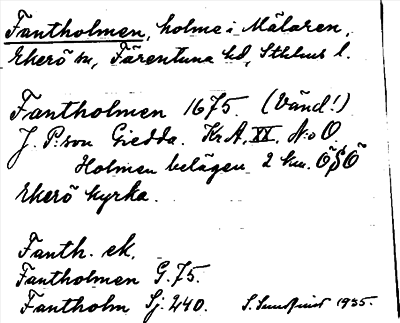 Fantholmen, holme i Mälaren,
Ekerö sn, Färentuna hd, Sthlms l.
Fantholmen 1675. (Vänd!)
J. P:son Giedda. Kr A, XX, N:o O
Holmen belägen 2 km. ÖSÖ
Ekerö kyrka.
Fanth. ek.
Fantholmen G. 75.
Fantholm Sj. 240. S. 1935.